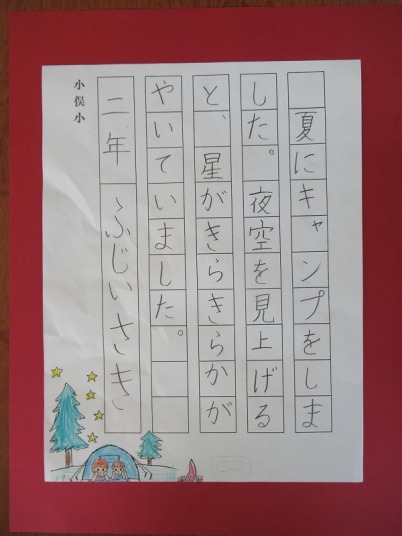 夏にキャンプをしま
した。夜空を見上げる
と、星がきらきらかが
やいていました。
二年 ふじいさき
小俣小